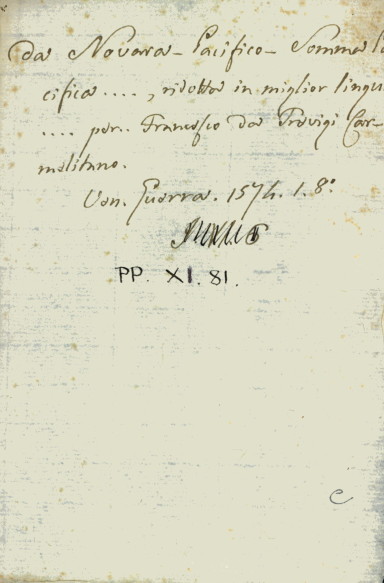 da Novara - Pacifico - Somma Pa
cifica ...., ridotta in miglior lingu
.... per.. Francesco da Trevigi Car-
melitano.
Ven. Guerra. 1574. 1. 8º
PP. XI. 81.
C